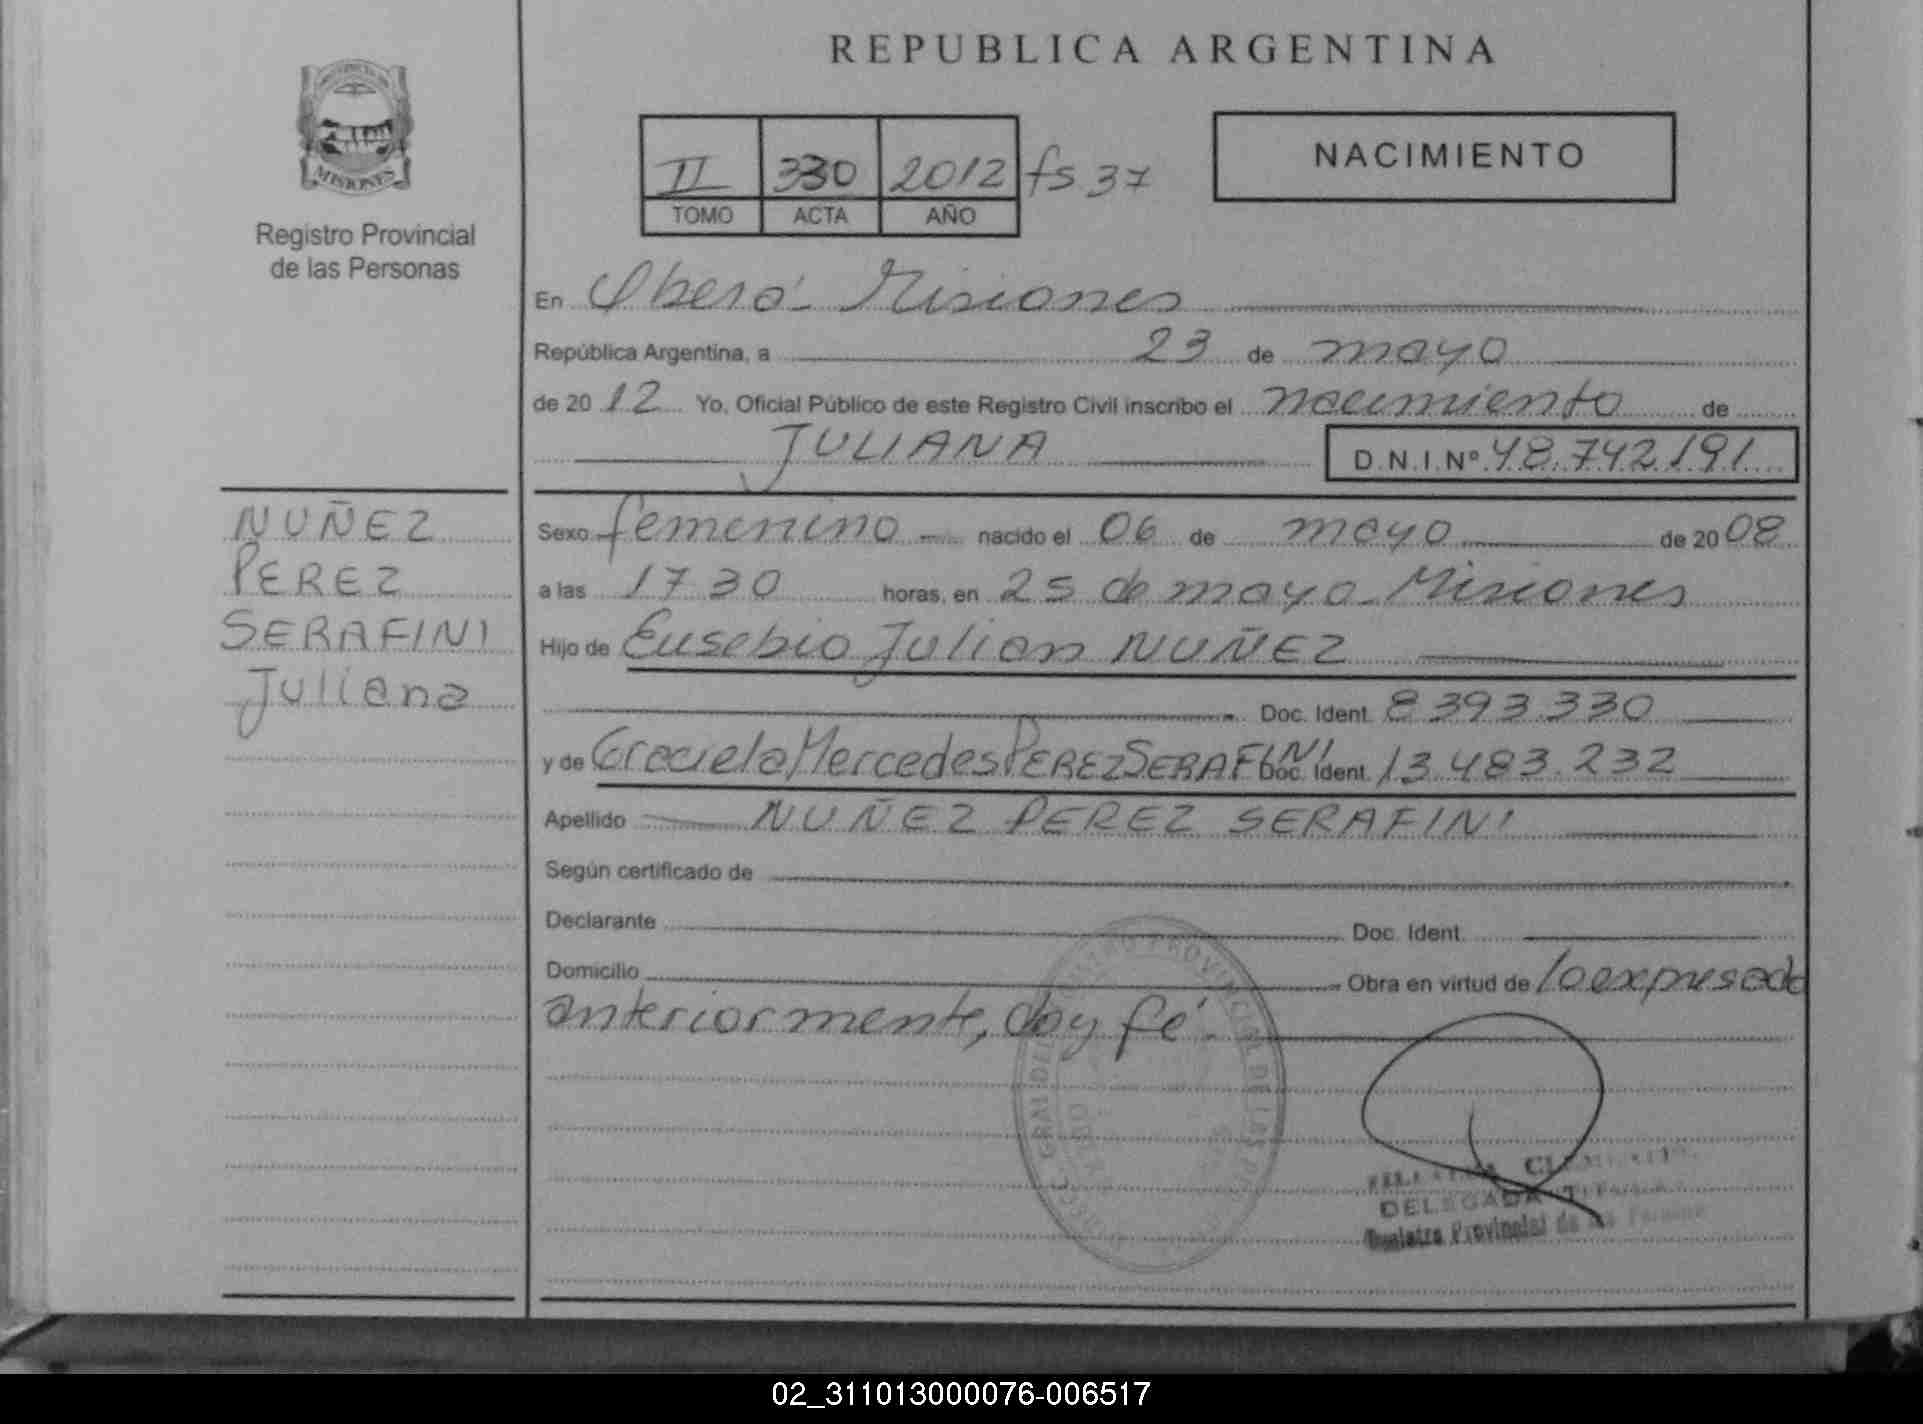 REPUBLICA ARGENTINA
MISIONES
Registro Provincial
de las Personas
II 330 2012 fs 37
TOMO ACTA AÑO
NACIMIENTO
En Oberá - Misiones
República Argentina, a 23 de mayo
de 2012 Yo, Oficial Público de este Registro Civil inscribo el nacimiento de
JULIANA D.N.I.Nº 48.742.191
NUÑEZ
PEREZ
SERAFINI
Juliana
Sexo femenino nacido el 06 de mayo de 2008
a las 17 30 horas, en 25 de mayo - Misiones
Hijo de Eusebio Julian NUÑEZ
Doc. Ident. 8 393.330
y de Graciela Mercedes PEREZ SERAFINI Doc. Ident. 13.483.232
Apellido NUÑEZ PEREZ SERAFINI
Según certificado de
Declarante Doc. Ident.
Domicilio Obra en virtud de lo expresado
anteriormente, doy fé.
DELEGADA
Registro Provincial de las
02_311013000076-006517